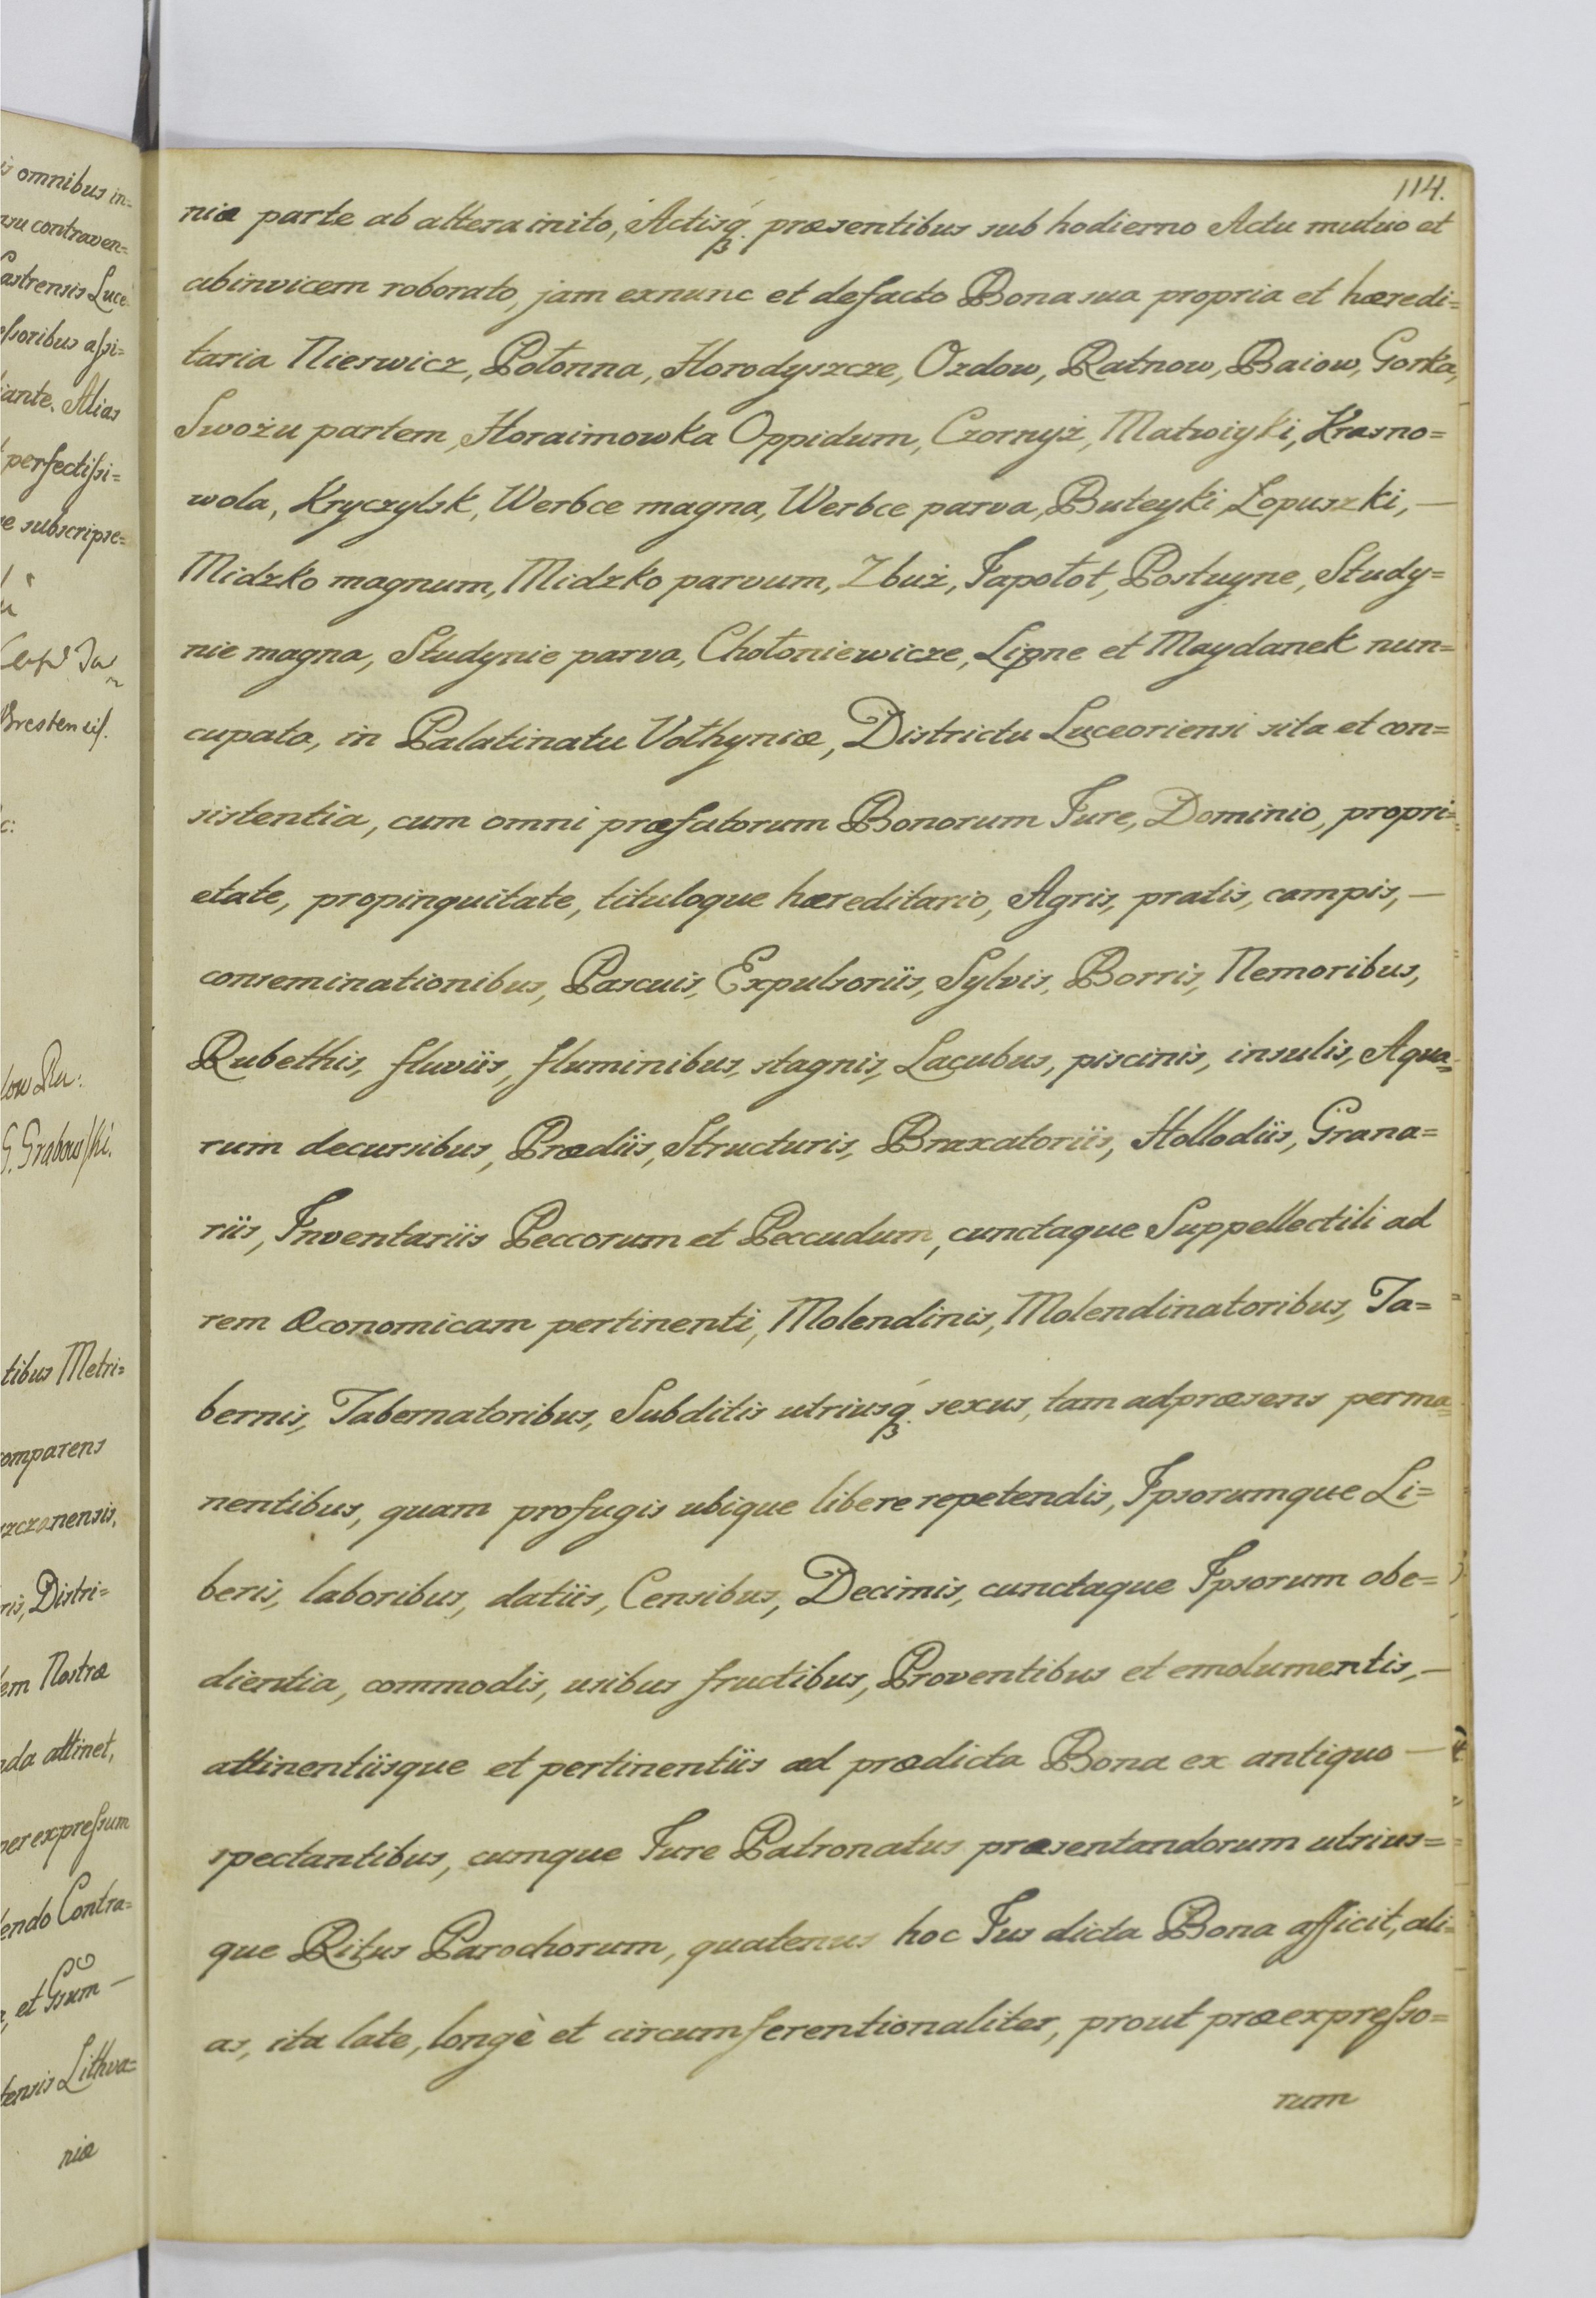 is omnibus in=
contraven=
astrensis Luce
essoribus assi=
iante. Alias
perfectissi=
subscripse=
Brestensis.
G. Grabowski.
tibus Metri=
comparens
Distri=
em Nostræ
nda attinet,
per expressum
endo Contra=
et Gsum —
tensis Lithva=
niæ
114.
niæ parte ab altera inito, Actisq́ꝫ præsentibus sub hodierno Actu mutuo et
abinvicem roborato, jam exnunc et defacto Bona sua propria et hæredi=
taria Nieswicz, Połonna, Horodyszcze, Ozdow, Ratnow, Baiow, Gorka,
Swożu partem, Horaimowka Oppidum, Czornyż, Matwiyki, Krasno=
wola, Kryczylsk, Werbce magna, Werbce parva, Buteyki, Łopuszki, —
Midzko magnum, Midzko parvum, Zbuż, Japołot, Postuyne, Study=
nie magna, Studynie parva, Chołoniewicze, Lipne et Maydanek nun=
cupata, in Palatinatu Vołhyniæ, Districtu Luceoriensi sita et con=
sistentia, cum omni præfatorum Bonorum Jure, Dominio, propri=
etate, propinquitate, tituloque hæreditario, Agris, pratis, campis, —
conseminationibus, Pascuis, Expulsoriis, Sylvis, Borris, Nemoribus,
Rubethis, fluviis, fluminibus, stagnis, Lacubus, piscinis, insulis, Aqua=
rum decursibus, Prædiis, Structuris, Braxatoriis, Hollodiis, Grana=
riis, Inventariis Peccorum et Peccudum, cunctaque Suppellectili ad
rem Œconomicam pertinenti, Molendinis, Molendinatoribus, Ta=
bernis, Tabernatoribus, Subditis utriusq́ꝫ sexus, tam adpræsens perma=
nentibus, quam profugis ubique libere repetendis, Ipsorumque Li=
beris, laboribus, datiis, Censibus, Decimis, cunctaque Ipsorum obe=
dientia, commodis, usibus fructibus, Proventibus et emolumentis, —
attinentiisque et pertinentiis ad prædicta Bona ex antiquo —
spectantibus, cumque Jure Patronatus præsentandorum utrius=
que Ritus Parochorum, quatenus hoc Jus dicta Bona afficit, ali=
as, ita late, longè et circumferentionaliter, prout præexpresso=
rum